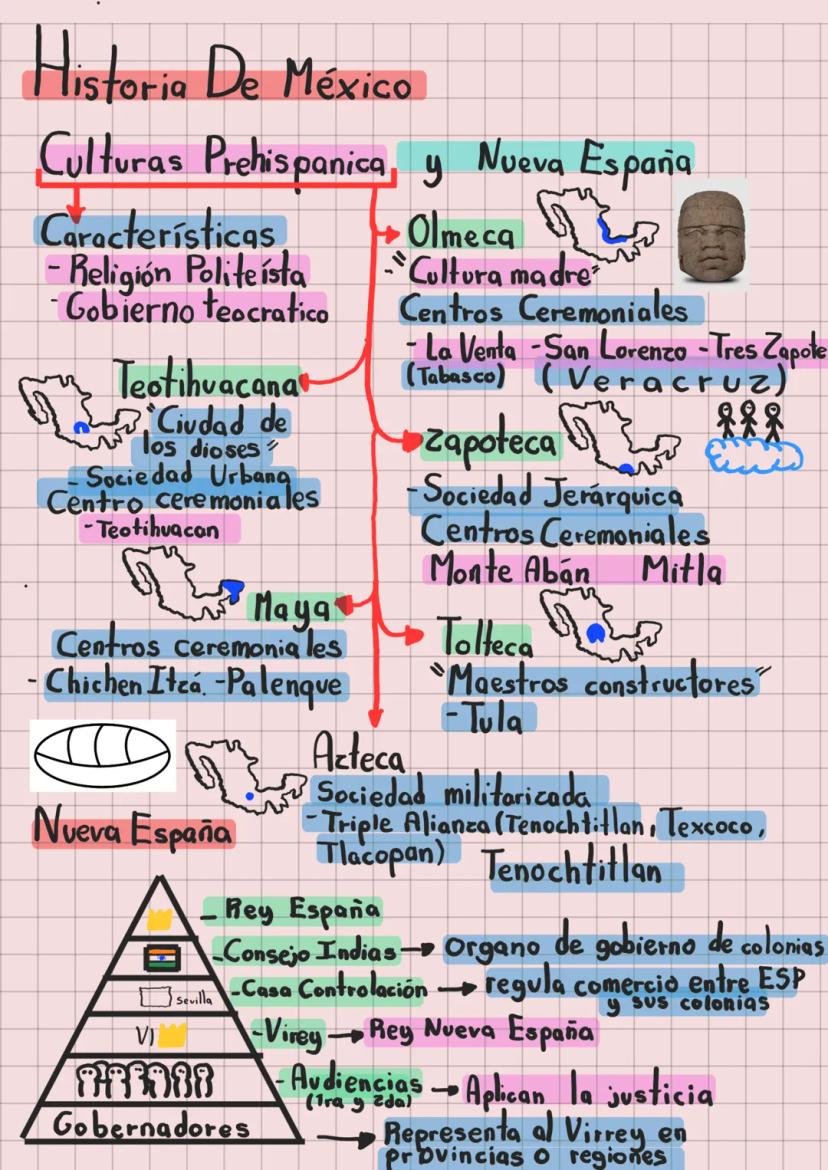 Historia De México
Culturas Prehispanica y Nueva España
Características
- Religión Politeísta
- Gobierno teocratico
Olmeca
- "Cultura madre"
Centros Ceremoniales
- La Venta - San Lorenzo - Tres Zapote
(Tabasco) (Veracruz)
Teotihuacana
"Ciudad de
los dioses"
- Sociedad Urbana
Centro ceremoniales
- Teotihuacan
Zapoteca
- Sociedad Jerárquica
Centros Ceremoniales
Monte Abán Mitla
Maya
Centros ceremoniales
- Chichen Itzá. - Palenque
Tolteca
"Maestros constructores"
- Tula
Azteca
Sociedad militarizada
- Triple Alianza (Tenochtitlan, Texcoco,
Tlacopan)
Tenochtitlan
Nueva España
- Rey España
- Consejo Indias → Organo de gobierno de colonias
sevilla
- Casa Controlación → regula comercio entre ESP
y sus colonias
VI
- Virey → Rey Nueva España
- Audiencias → Aplican la justicia
(1ra y 2da)
Gobernadores → Representa al Virrey en
provincias o regiones